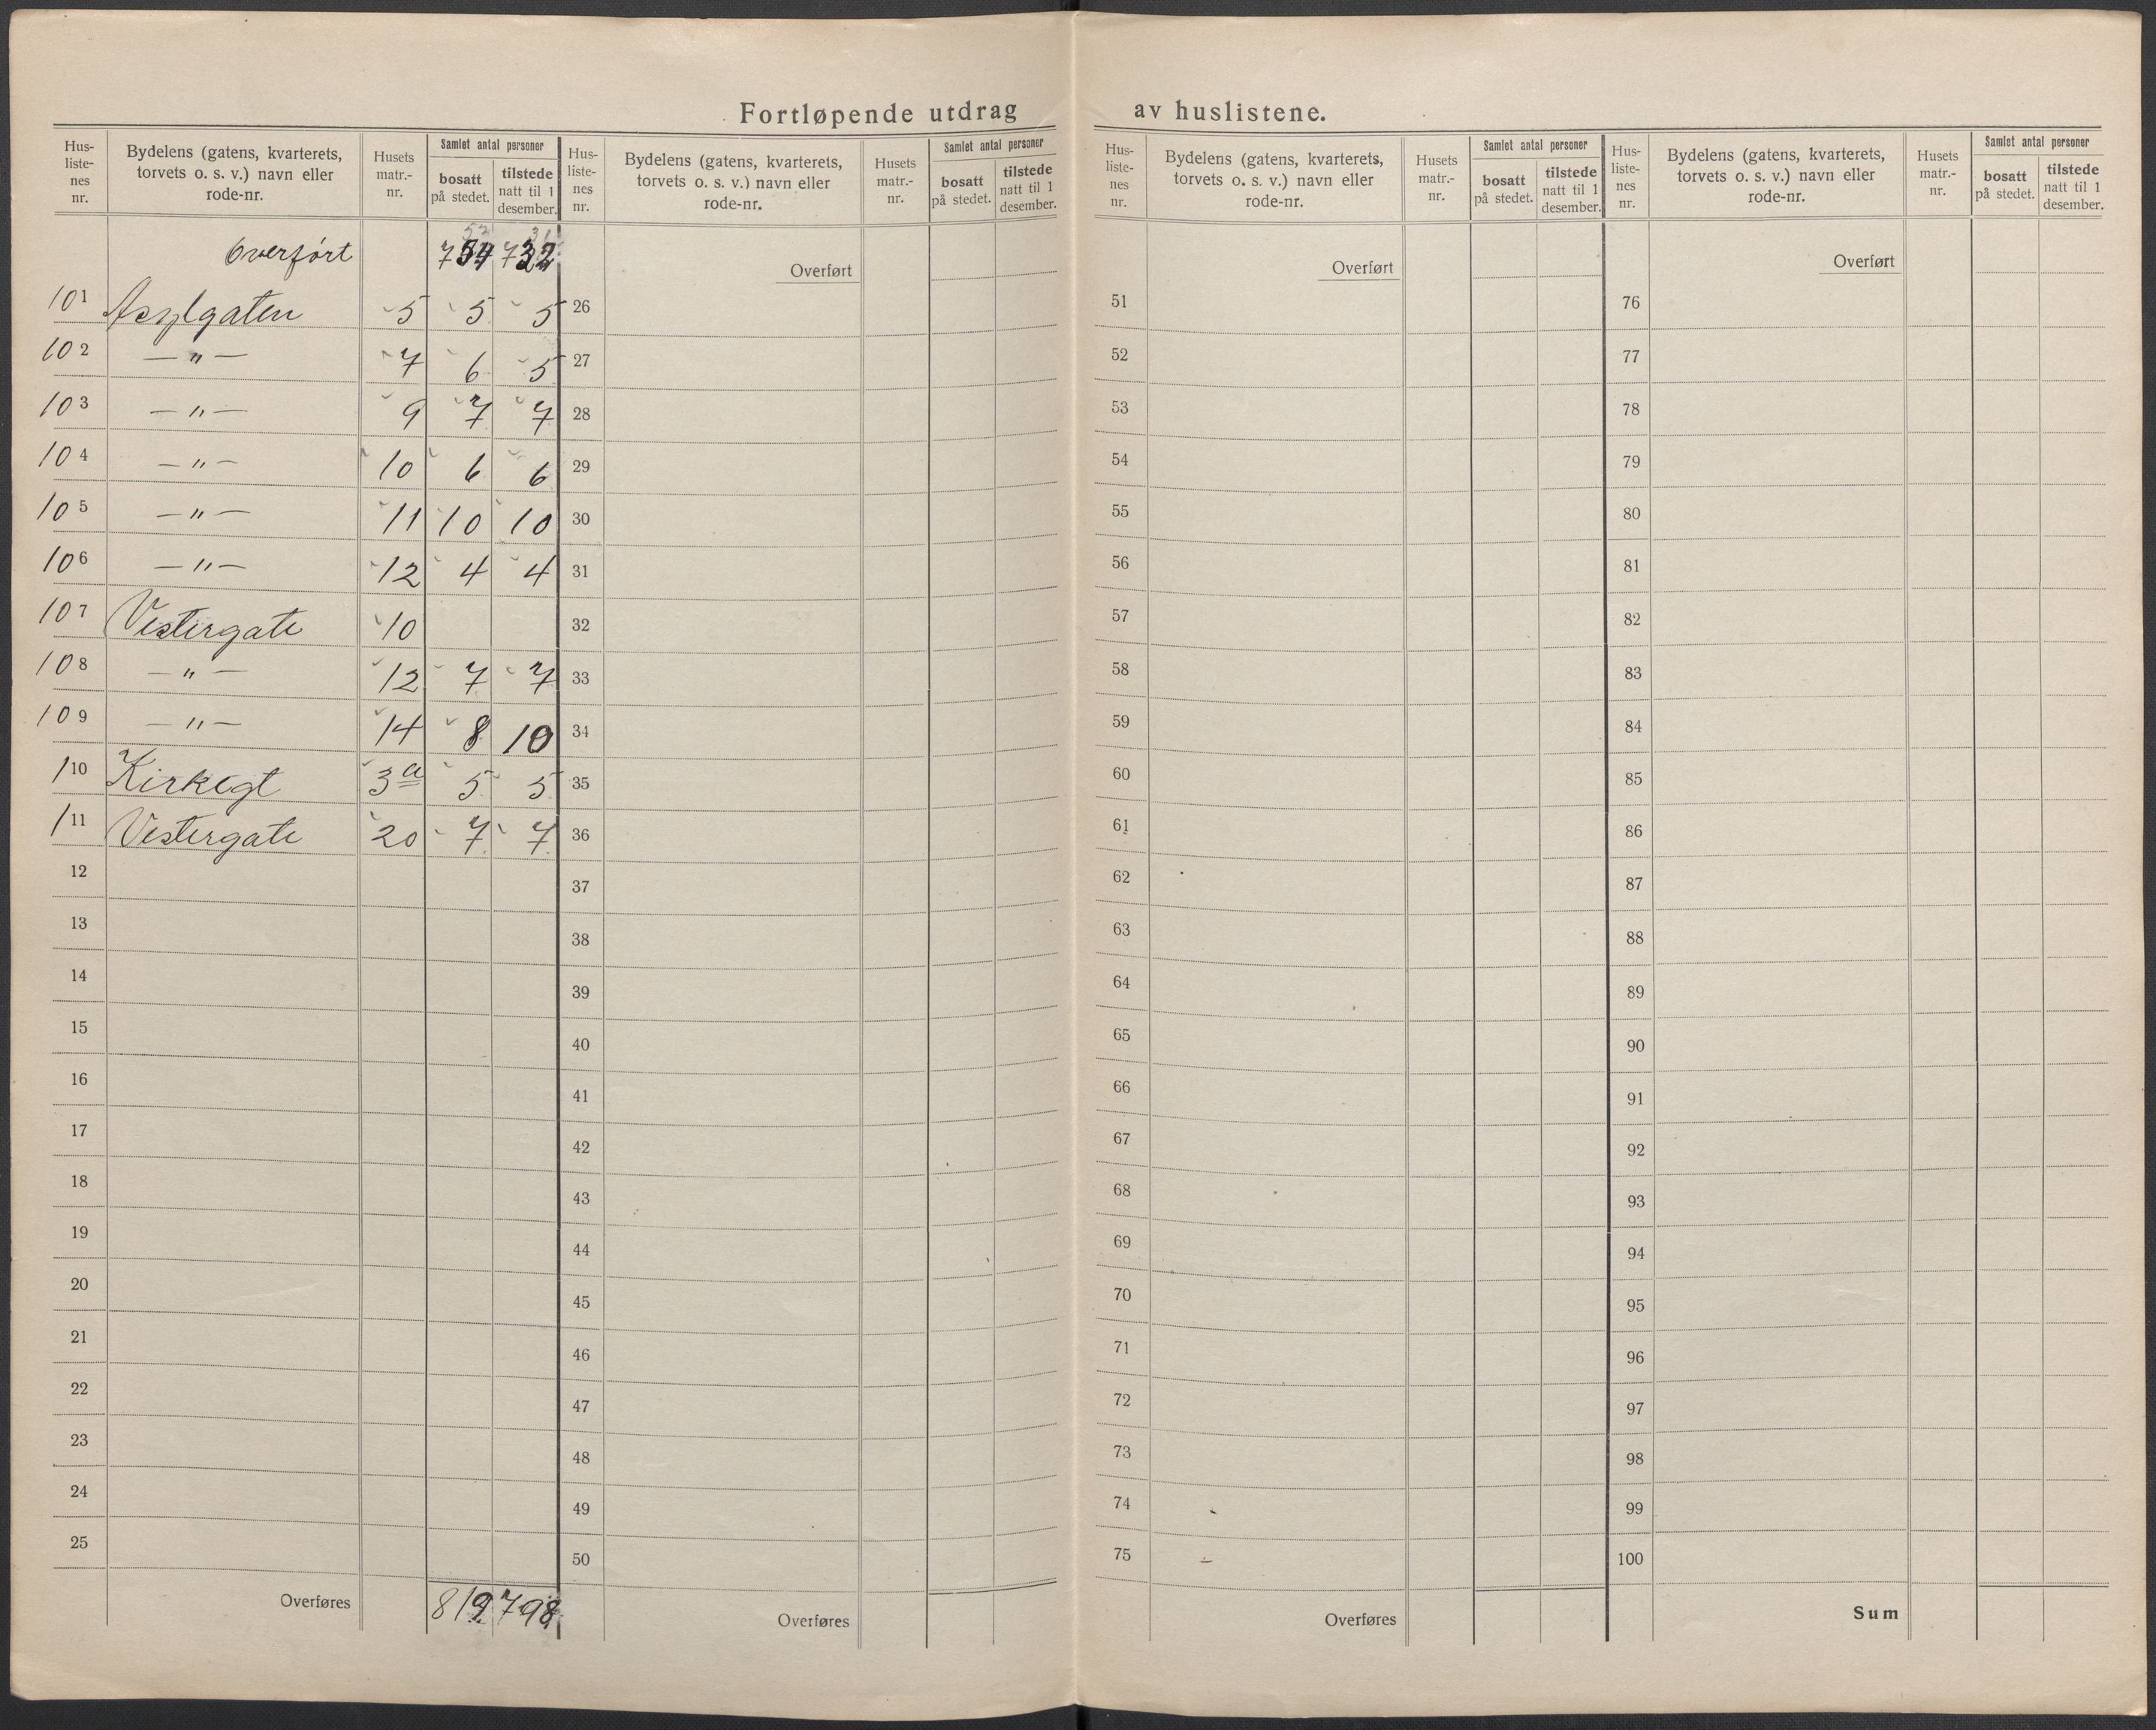 Fortløpende utdrag av huslistene.
Hus-listenes nr. | Bydelens (gatens, kvarterets, torvets o. s. v.) navn eller rode-nr. | Husets matr.-nr. | Samlet antal personer | bosatt på stedet. | tilstede natt til 1 desember.
Overført 754 732
101 Asylgaten 5 5 5
102 — " — 7 6 5
103 — " — 9 7 7
104 — " — 10 6 6
105 — " — 11 10 10
106 — " — 12 4 4
107 Vestergate 10
108 — " — 12 7 7
109 — " — 14 8 10
110 Kirkegt 3a 5 5
111 Vestergate 20 7 7
12
13
14
15
16
17
18
19
20
21
22
23
24
25
Overføres 819 798
Hus-listenes nr. | Bydelens (gatens, kvarterets, torvets o. s. v.) navn eller rode-nr. | Husets matr.-nr. | Samlet antal personer | bosatt på stedet. | tilstede natt til 1 desember.
Overført
26
27
28
29
30
31
32
33
34
35
36
37
38
39
40
41
42
43
44
45
46
47
48
49
50
Overføres
Hus-listenes nr. | Bydelens (gatens, kvarterets, torvets o. s. v.) navn eller rode-nr. | Husets matr.-nr. | Samlet antal personer | bosatt på stedet. | tilstede natt til 1 desember.
Overført
51
52
53
54
55
56
57
58
59
60
61
62
63
64
65
66
67
68
69
70
71
72
73
74
75
Overføres
Hus-listenes nr. | Bydelens (gatens, kvarterets, torvets o. s. v.) navn eller rode-nr. | Husets matr.-nr. | Samlet antal personer | bosatt på stedet. | tilstede natt til 1 desember.
Overført
76
77
78
79
80
81
82
83
84
85
86
87
88
89
90
91
92
93
94
95
96
97
98
99
100
Sum